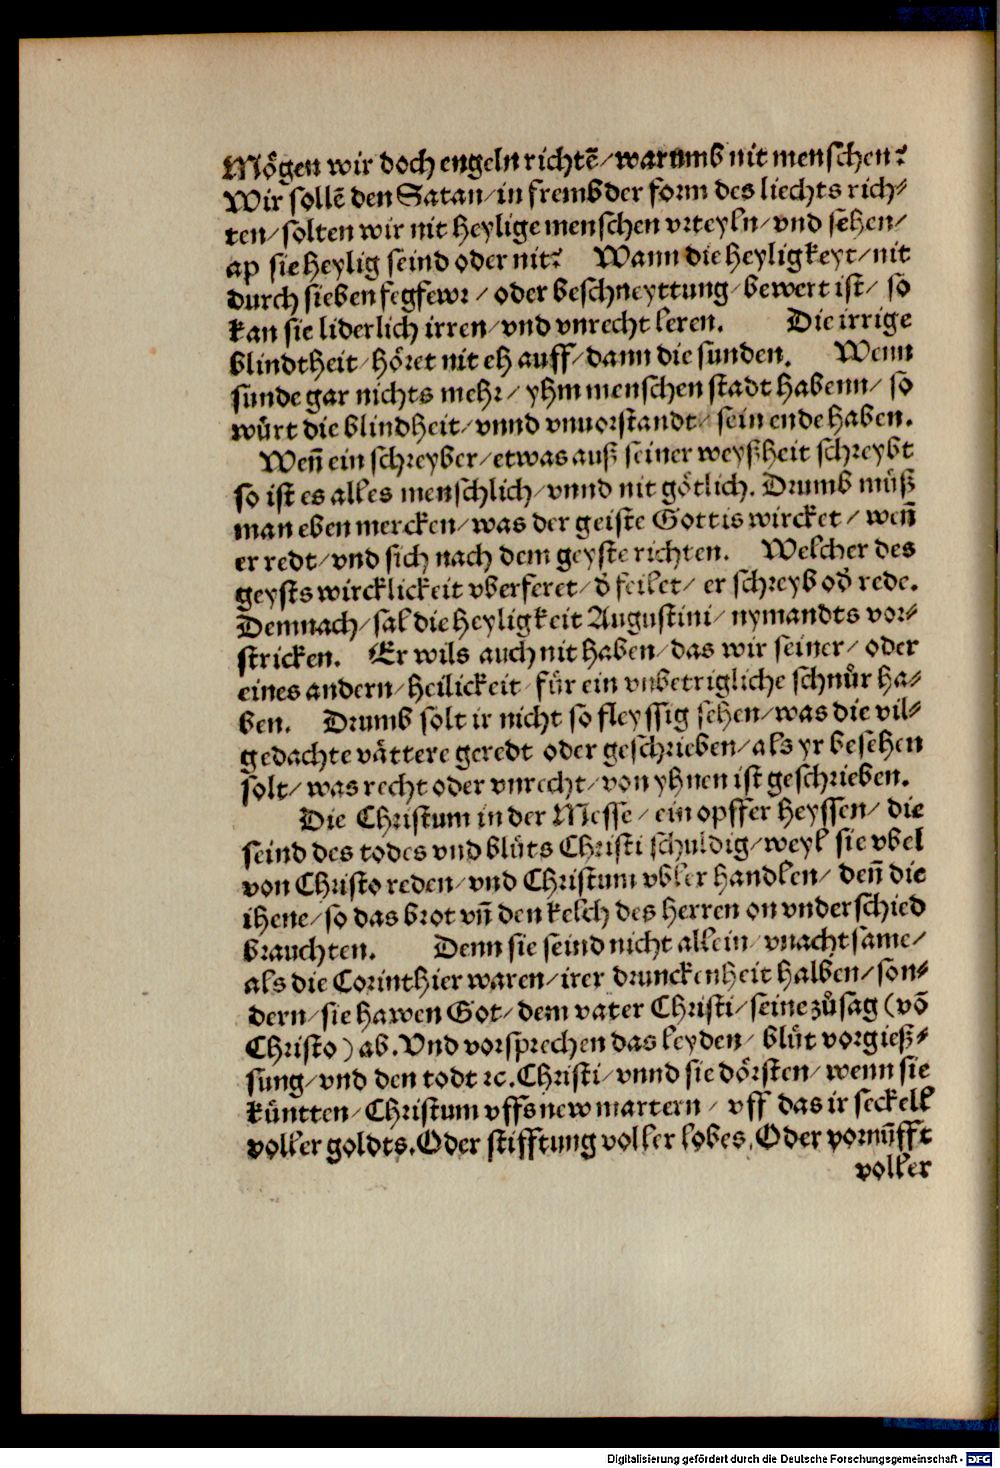 Mögen wir doch engeln richtē/warumb nit menschen?
Wir sollē den Satan/in frembder form des liechts rich⸗
ten/solten wir nit heylige menschen vrteyln/vnd sehen/
ap sie heylig seind oder nit? Wann die heyligkeyt/nit
durch sieben fegfewr/oder beschneyttung/bewert ist/so
kan sie liderlich irren/vnd vnrecht leren. Die irrige
blindtheit/höret nit eh auff/dann die sunden. Wenn
sunde gar nichts mehr/yhm menschen stadt habenn/so
wůrt die blindheit/vnnd vnuorstandt/sein ende haben.
Weñ ein schreyber/etwas auß seiner weyßheit schreybt
so ist es alles menschlich/vnnd nit götlich. Drumb můß
man eben mercken/was der geiste Gottis wircket/weñ
er redt/vnd sich nach dem geyste richten. Welcher des
geysts wircklickeit vberferet/d̕ feilet/er schreyb od̕ rede.
Demnach/sal die heyligkeit Augustini/nymandts vor⸗
stricken. Er wils auch nit haben/das wir seiner/oder
eines andern/heilickeit/für ein vnbetrigliche schnůr ha⸗
ben. Drumb solt ir nicht so fleyssig sehen/was die vil⸗
gedachte vättere geredt oder geschrieben/als yr besehen
solt/was recht oder vnrecht/von yhnen ist geschrieben.
Die Christum in der Messe/ein opffer heyssen/die
seind des todes vnd blůts Christi schuldig/weyl sie vbel
von Christo reden/vnd Christum vbler handlen/deñ die
ihene/so das brot vñ den kelch des herren on vnderschied
brauchten. Denn sie seind nicht allein/vnachtsame/
als die Corinthier waren/irer drunckenheit halben/son⸗
dern/sie hawen Got/dem vater Christi/seine zůsag (võ
Christo) ab. Vnd vorsprechen das leyden/blůt vorgieß⸗
sung/vnd den todt ꝛc. Christi/vnnd sie dörsten/wenn sie
küntten/Christum vffs new martern/vff das ir seckell
voller goldts. Oder stifftung voller lobes. Oder vornūfft
voller
Digitalisierung gefördert durch die Deutsche Forschungsgemeinschaft - DFG